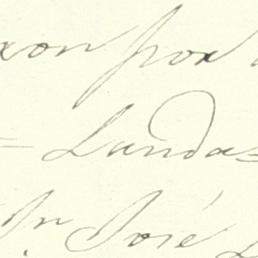 xon por
= Landa=
Jn José